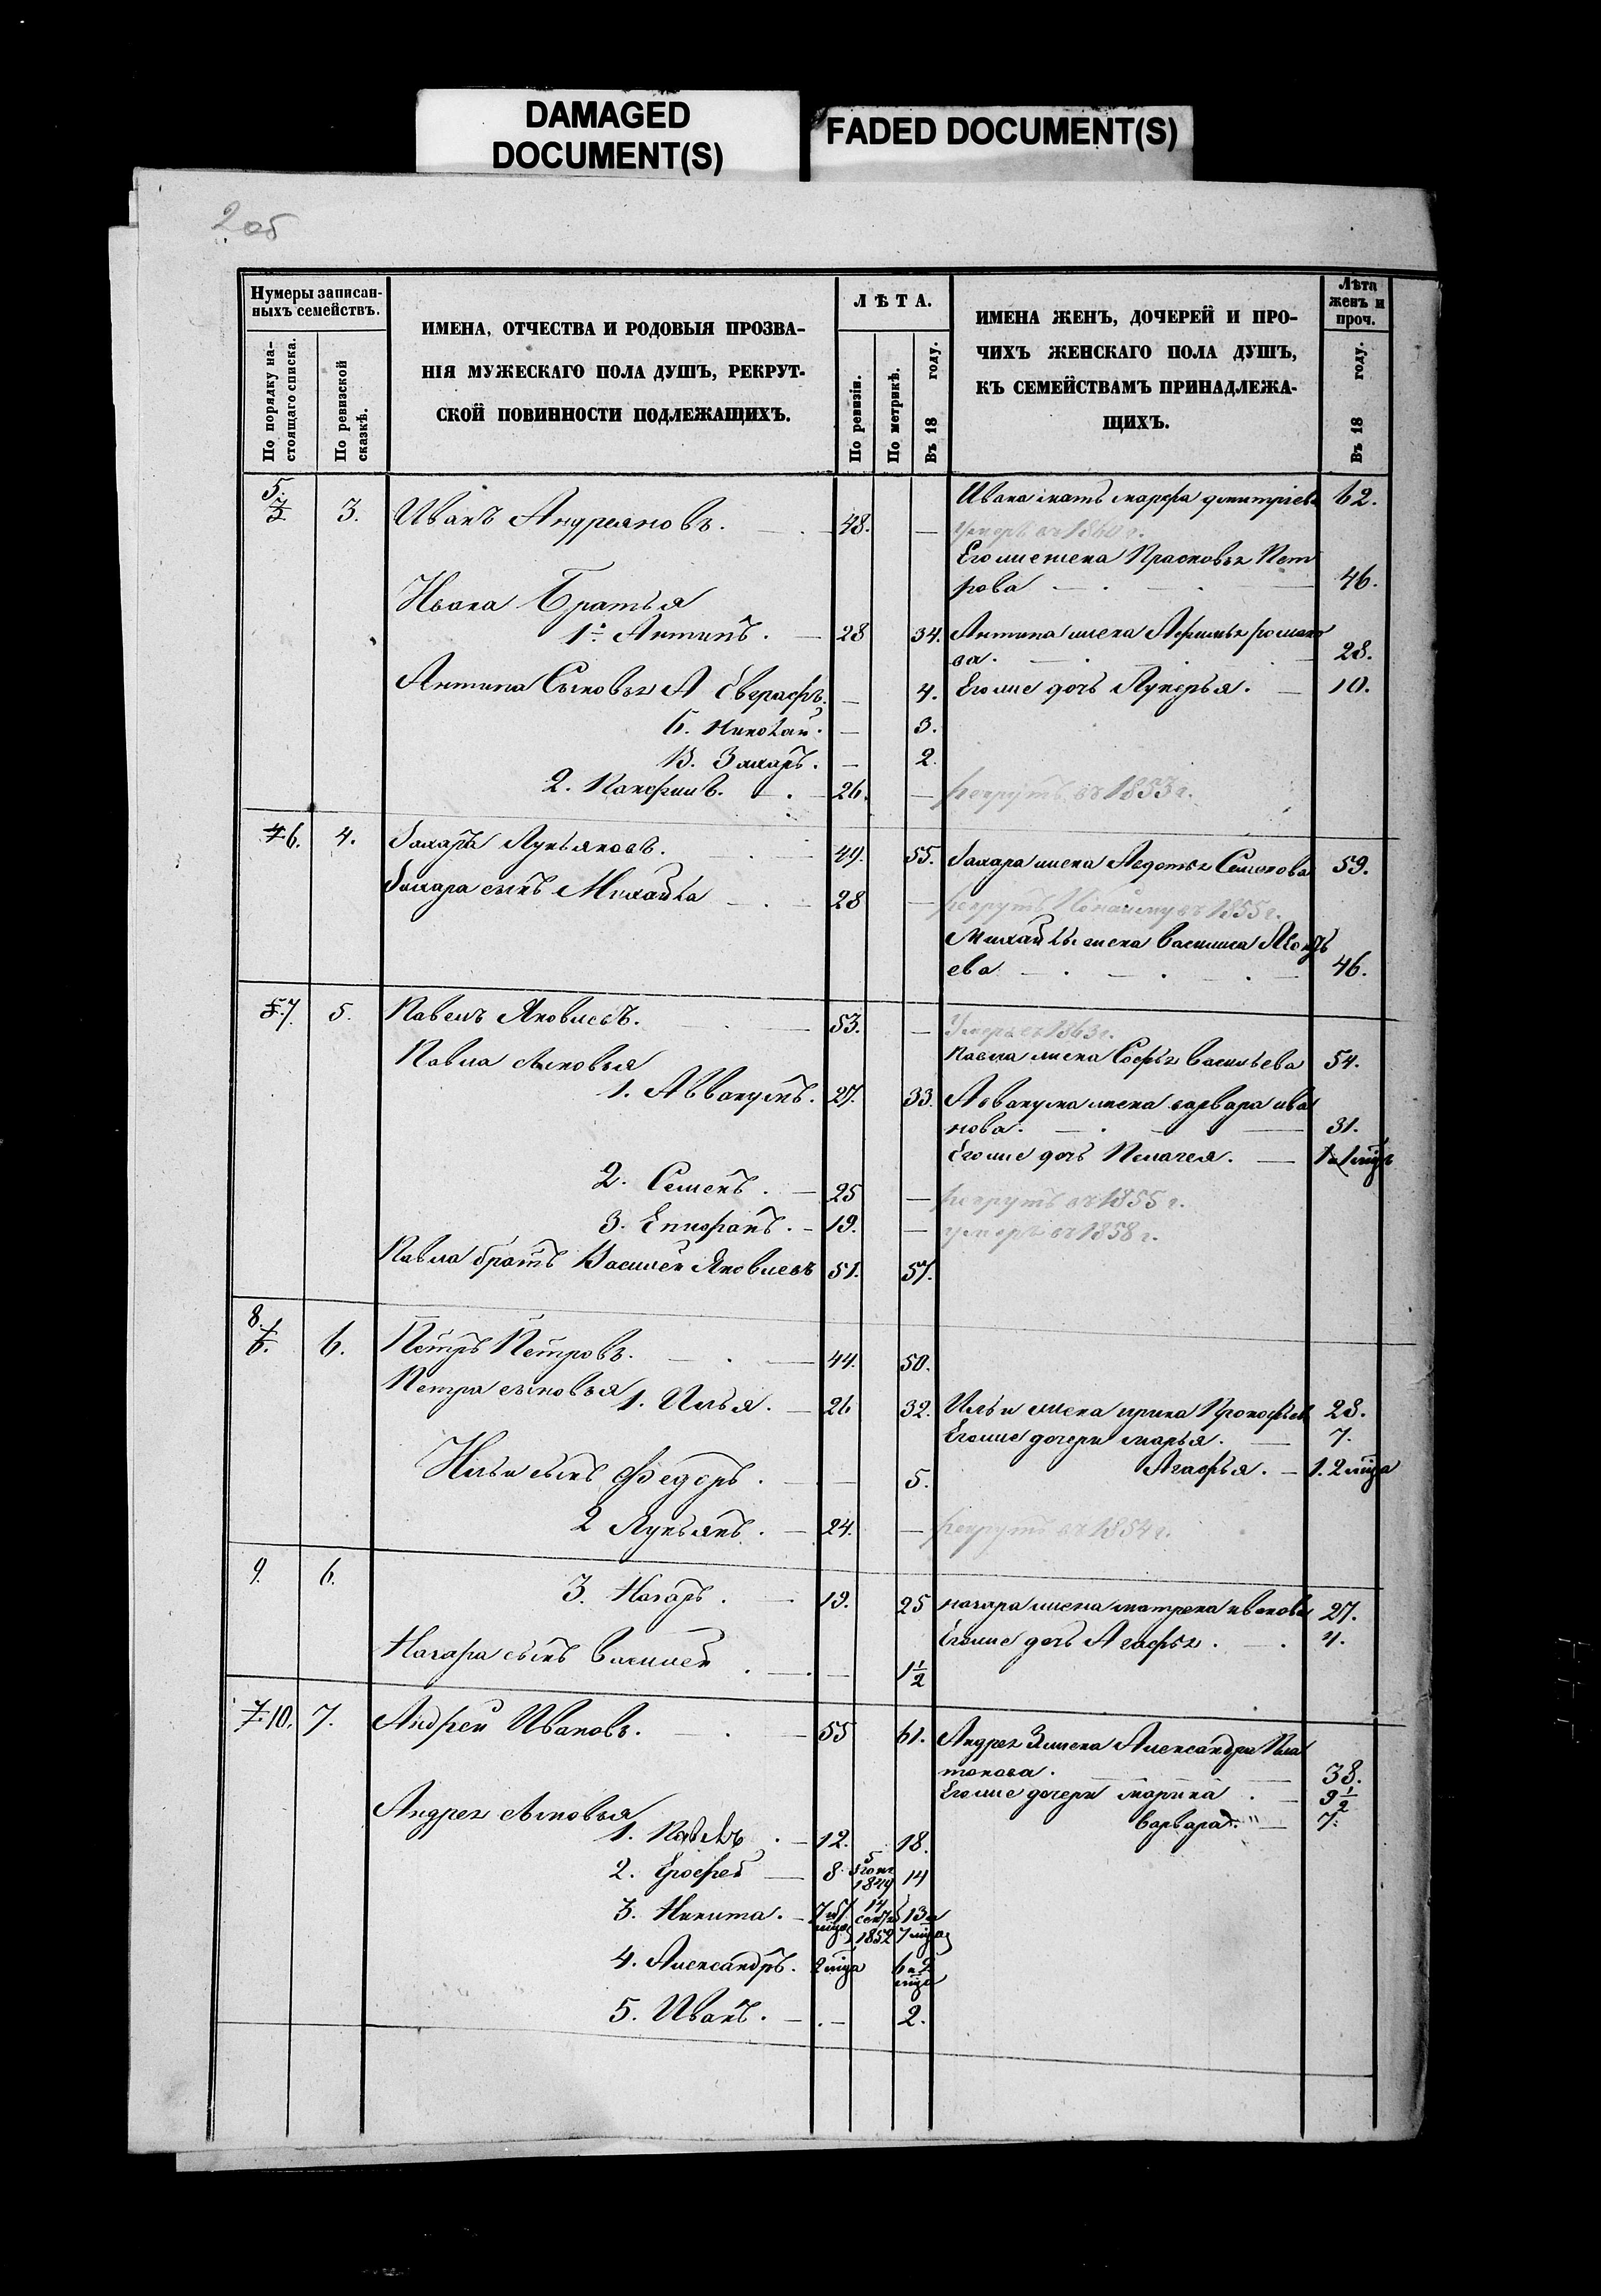 DAMAGED
DOCUMENT(S)
FADED DOCUMENT(S)
2 об
Нумеры записан-
ныхъ семействъ.
По порядку на-
стоящаго списка.
По ревизской
сказкѣ.
ИМЕНА, ОТЧЕСТВА И РОДОВЫЯ ПРОЗВА-
НІЯ МУЖЕСКАГО ПОЛА ДУШЪ, РЕКРУТ-
СКОЙ ПОВИННОСТИ ПОДЛЕЖАЩИХЪ.
ЛѢТА.
По ревизіи.
По метрикѣ.
Въ 18 году.
ИМЕНА ЖЕНЪ, ДОЧЕРЕЙ И ПРО-
ЧИХЪ ЖЕНСКАГО ПОЛА ДУШЪ,
КЪ СЕМЕЙСТВАМЪ ПРИНАДЛЕЖА-
ЩИХЪ.
Лѣта
женъ и
проч.
Въ 18 году.
5. 3. Иванъ Андреяновъ. 48. — Ивана мать марфа дмитріева 62.
Умеръ въ 1860 г.
Егоже жена Прасковья Пет
рова 46.
Ивана Братья
1. Антипъ. 28 34. Антипа жена Афимья романо
ва. 28.
Антипа Сыновья А Евграфъ. — 4. Егоже дочь Лукерья. 10.
Б. Николай. — 3.
В. Захаръ. — 2.
2. Панфилъ. 26. — рекрутъ въ 1853 г.
4 6. 4. Захаръ Лукьяновъ. 49. 55. Захара жена Авдотья Семенова 59.
Захара сынъ Михайла 28 — рекрутъ въ 1855 г.
Михайлы жена Василиса
ева 46.
5. 7. 5. Павелъ Яковлевъ. 53. — Умеръ въ 1863 г.
Павла жена Софья Васильева 54.
Павла сыновья
1. Аввакумъ. 27. 33. Аввакума жена варвара ива
нова. 31.
Егоже дочь Пелагея. 1 мѣц
2. Семенъ. 25 — рекрутъ въ 1855 г.
3. Епифанъ. 19. — умеръ въ 1858 г.
Павла братъ Василей Яковлевъ 51. 57.
8. 6. 6. Петръ Петровъ. 44. 50.
Петра сыновья 1. Илья. 26 32. Ильи жена ирина Прокофьев 28.
Егоже дочери марья. 7.
Агафья. 1. 2 мѣца
Ильи сынъ Федоръ. — 5.
2 Лукьянъ. 24. — рекрутъ въ 1854 г.
9. 6. 3. Назаръ. 19. 25 назара жена матрена иванова 27.
Егоже дочь Агафья. 4.
Назара сынъ Василей — 1 1/2
7. 10. 7. Андрей Ивановъ. 55 61. Андрея жена Александра Пла
тонова. 38.
Егоже дочери марина 9 1/2
Варвара. 7.
Андрея сыновья
1. Павелъ 12. 18.
2. Ерофей 8. 5 1849 14
3. Никита. 7 мѣца 14 1852 13 и 7 мѣца
4. Александръ. 2 мѣца 6 и 2 мѣца
5. Иванъ. — 2.